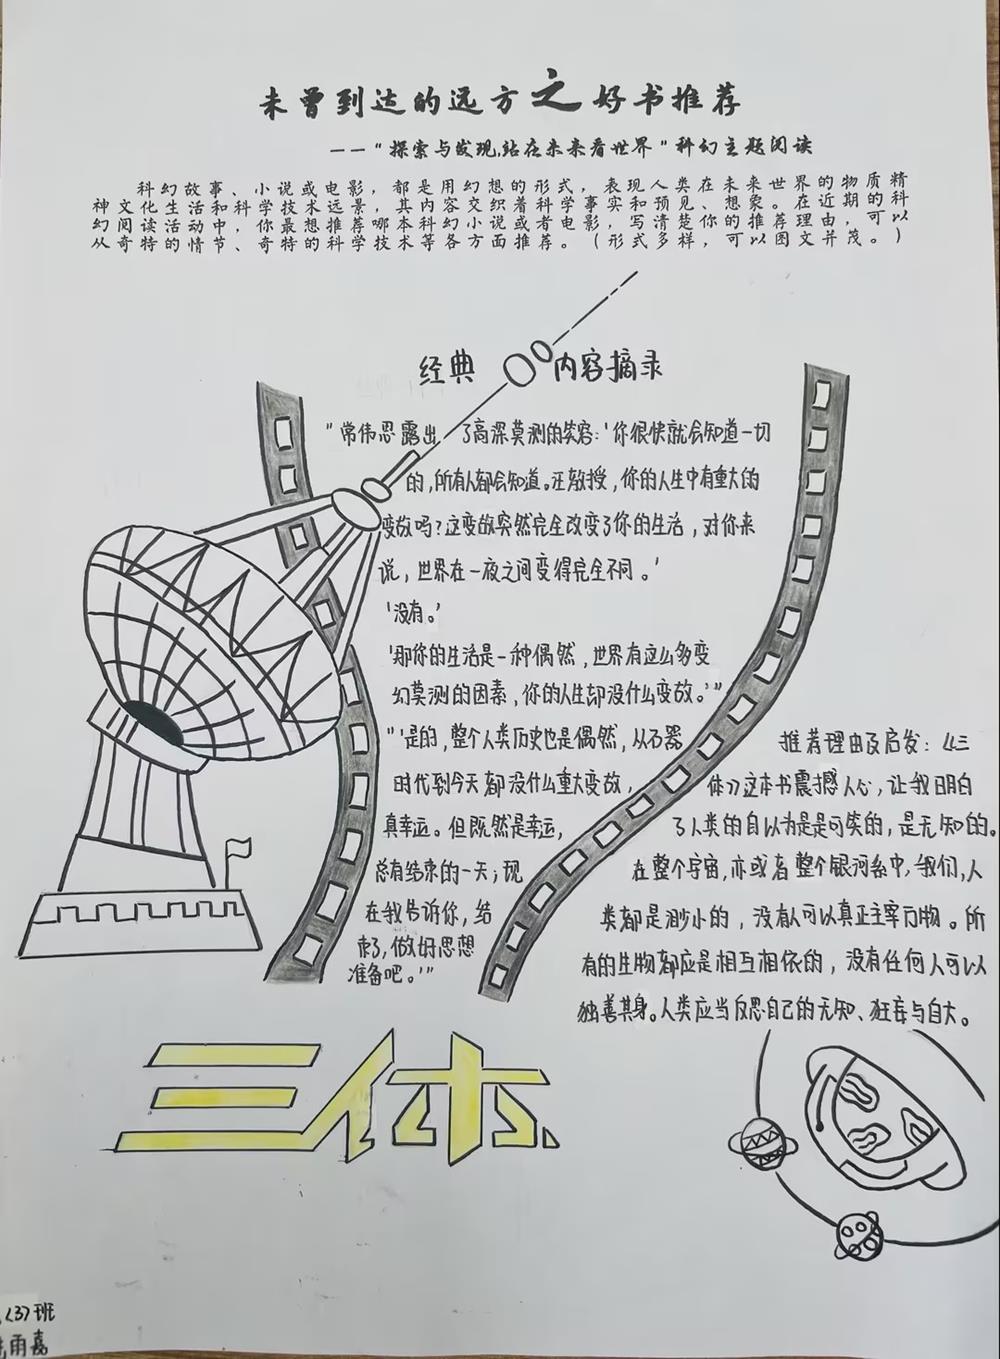 未曾到达的远方之好书推荐
——“探索与发现,站在未来看世界”科幻主题阅读
科幻故事、小说或电影，都是用幻想的形式，表现人类在未来世界的物质精
神文化生活和科学技术远景，其内容交织着科学事实和预见、想象。在近期的科
幻阅读活动中，你最想推荐哪本科幻小说或者电影，写清楚你的推荐理由，可以
从奇特的情节、奇特的科学技术等各方面推荐。（形式多样，可以图文并茂。）
经典 内容摘录
“常伟思露出 了高深莫测的笑容：‘你很快就会知道一切
的，所有人都会知道。汪教授，你的人生中有重大的
变故吗？这变故突然完全改变了你的生活，对你来
说，世界在一夜之间变得完全不同。’
‘没有。’
‘那你的生活是一种偶然，世界有这么多变
幻莫测的因素，你的人生却没什么变故。’”
“‘是的，整个人类历史也是偶然，从石器
时代到今天都没什么重大变故，
真幸运。但既然是幸运，
总有结束的一天；现
在我告诉你，结
束了，做好思想
准备吧。’”
推荐理由及启发：《三
体》这本书震撼人心，让我明白
了人类的自以为是是可笑的，是无知的。
在整个宇宙，亦或者整个银河系中，我们，人
类都是渺小的，没有人可以真正主宰万物。所
有的生物都应是相互相依的，没有任何人可以
独善其身。人类应当反思自己的无知、狂妄与自大。
三体
(3)班
雨嘉